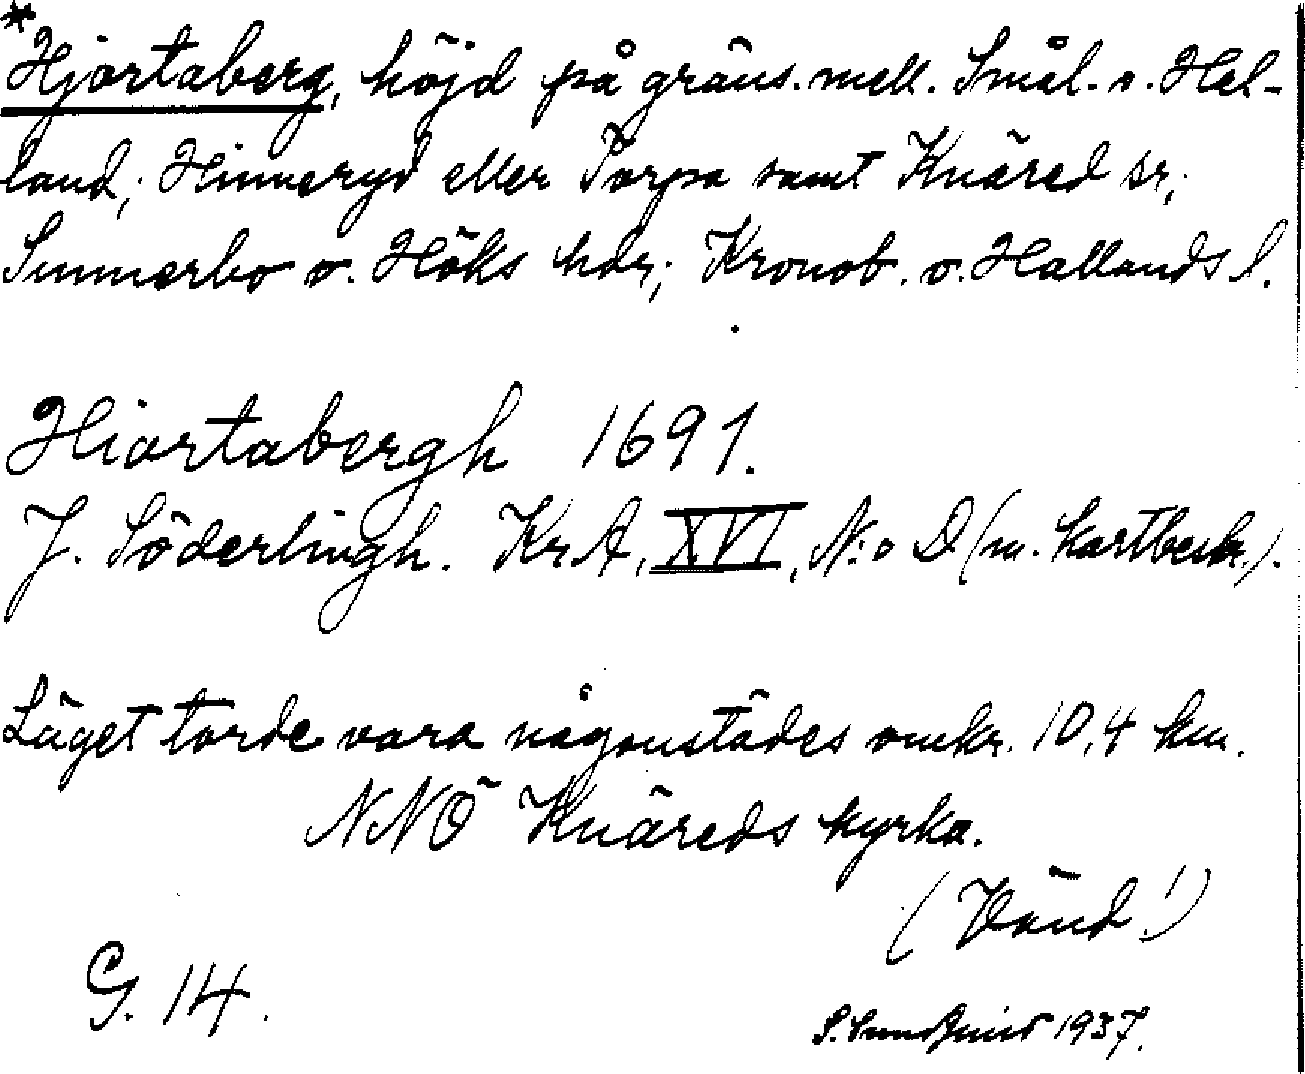 *Hjortaberg, höjd på gräns. mell. Smål. o. Hal-
land; Hinneryd eller Torpa samt Knäred sr;
Sunnerbo o. Höks hdr; Kronob. o. Hallands l.
Hiortabergh 1691.
J. Söderlingh. KrA, XVI, N:o D (m. kartbeskr.).
Läget torde vara någonstädes omkr. 10,4 km.
NNÖ Knäreds kyrka.
(Vänd!)
G. 14.
S. Sundquist 1937.